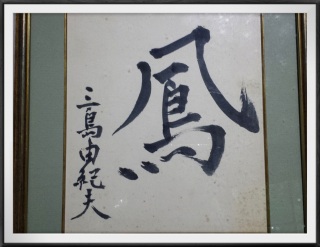 鳳
三島由紀夫